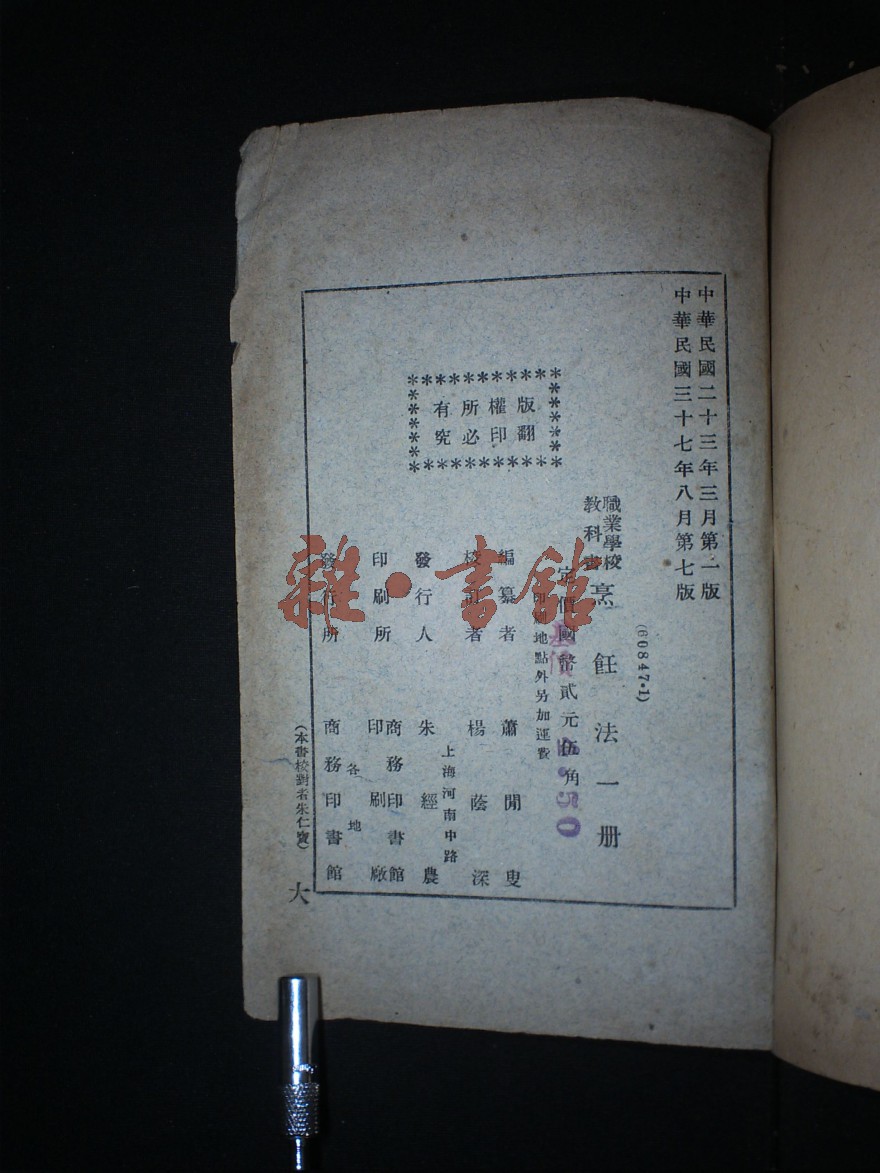 中華民國二十三年三月第一版
中華民國三十七年八月第七版
(60847·1)
職業學校
教科書
烹飪法一册
定價國幣貳元伍角
印刷地點外另加運費
.50
版權所有
翻印必究
編纂者 蕭閒叟
校訂者 楊蔭深
上海河南中路
發行人 朱經農
印刷所 商務印書館
印刷廠
各地
發行所 商務印書館
(本書校對者朱仁寶)
大
雜·書館